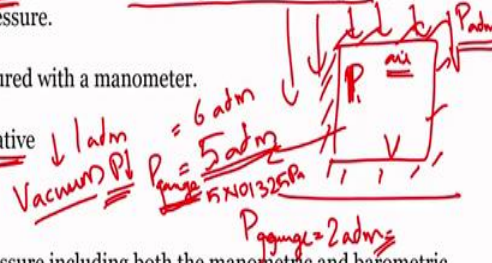 essure.
ured with a manometer.
ative
↓ 1 adm
Vacuum P↓
= 6 adm
P gauge = 5 adm
5×101325 Pa
P adm
air
P1
V
P gauge = 2 adm =
ssure including both the manometric and barometric